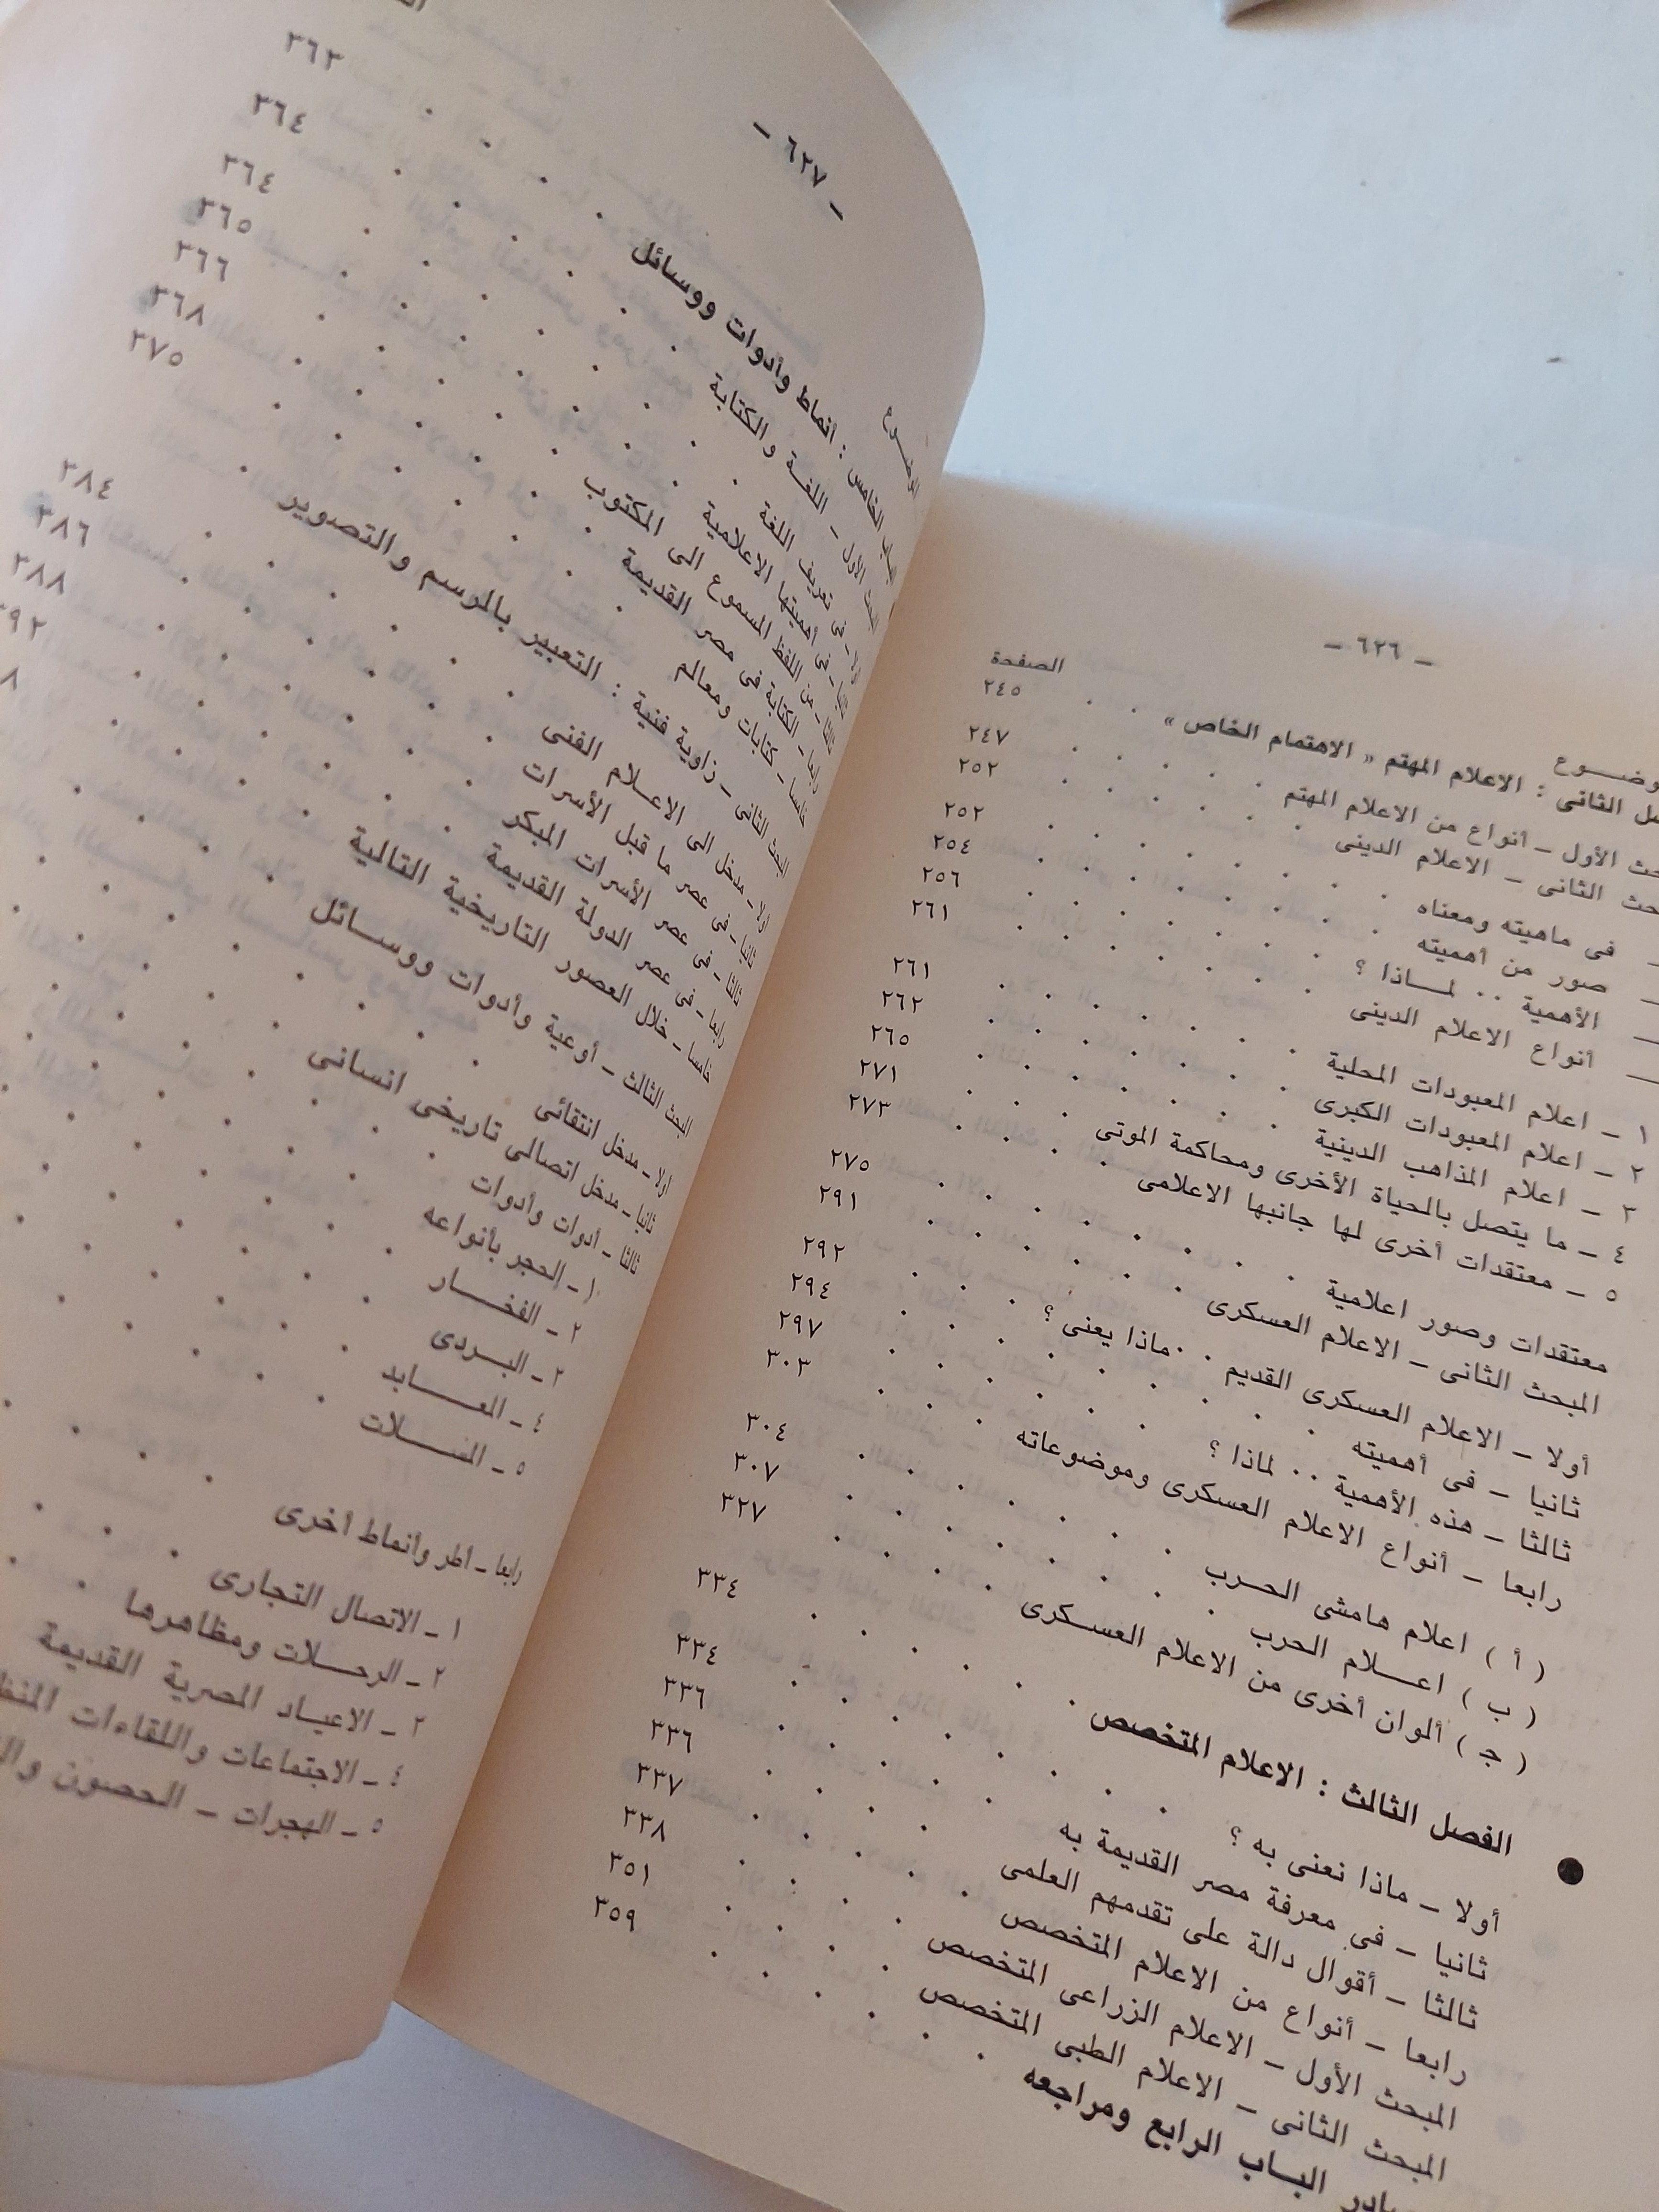 – ٦٢٦ –
الصفحة
الفصل الثانى : الاعلام المهتم « الاهتمام الخاص » ٢٤٥
المبحث الأول – أنواع من الاعلام المهتم ٢٤٧
المبحث الثانى – الاعلام الدينى ٢٥٢
– فى ماهيته ومعناه ٢٥٢
– صور من أهميته ٢٥٤
– الأهمية .. لماذا ؟ ٢٥٦
– أنواع الاعلام الدينى ٢٦١
١ – اعلام المعبودات المحلية ٢٦١
٢ – اعلام المعبودات الكبرى ٢٦٢
٣ – اعلام المذاهب الدينية ٢٦٥
٤ – ما يتصل بالحياة الأخرى ومحاكمة الموتى ٢٧١
٥ – معتقدات أخرى لها جانبها الاعلامى ٢٧٣
معتقدات وصور اعلامية ٢٧٥
المبحث الثانى – الاعلام العسكرى ٢٩١
أولا – الاعلام العسكرى القديم .. ماذا يعنى ؟ ٢٩٢
ثانيا – فى أهميته ٢٩٤
ثالثا – هذه الأهمية .. لماذا ؟ ٢٩٧
رابعا – أنواع الاعلام العسكرى وموضوعاته ٣٠٣
( أ ) اعلام هامشى الحرب ٣٠٤
( ب ) اعلام الحرب ٣٠٧
( ج ) ألوان أخرى من الاعلام العسكرى ٣٢٧
الفصل الثالث : الاعلام المتخصص ٣٣٤
أولا – ماذا نعنى به ؟ ٣٣٤
ثانيا – فى معرفة مصر القديمة به ٣٣٦
ثالثا – أقوال دالة على تقدمهم العلمى ٣٣٦
رابعا – أنواع من الاعلام المتخصص ٣٣٧
المبحث الأول – الاعلام الزراعى المتخصص ٣٣٨
المبحث الثانى – الاعلام الطبى المتخصص ٣٥١
الباب الرابع ومراجعه ٣٥٩
– ٦٢٧ –
الموضوع
الخامس : أنماط وأدوات ووسائل ٣٦٣
الأول – اللغة والكتابة ٣٦٤
أولا – فى تعريف اللغة ٣٦٤
ثانيا – فى أهميتها الاعلامية ٣٦٥
ثالثا – من اللفظ المسموع الى المكتوب ٣٦٦
رابعا – الكتابة فى مصر القديمة ٣٦٨
خامسا – كتابات ومعالم ٣٧٥
المبحث الثانى – زاوية فنية : التعبير بالرسم والتصوير
أولا – مدخل الى الاعلام الفنى ٣٨٤
ثانيا – فى عصر ما قبل الأسرات ٣٨٦
ثالثا – فى عصر الأسرات المبكر ٣٨٨
رابعا – فى عصر الدولة القديمة
خامسا – خلال العصور التاريخية التالية
المبحث الثالث – أوعية وأدوات ووسائل
أولا – مدخل انتقائى
ثانيا – مدخل اتصالى تاريخى انسانى
ثالثا – أدوات وأدوات
١ – الحجر بأنواعه
٢ – الفخار
٣ – البردى
٤ – المعابد
٥ – المسلات
رابعا – أطر وأنماط أخرى
١ – الاتصال التجارى
٢ – الرحلات ومظاهرها
٣ – الاعياد المصرية القديمة
٤ – الاجتماعات واللقاءات
٥ – الهجرات – الحصون